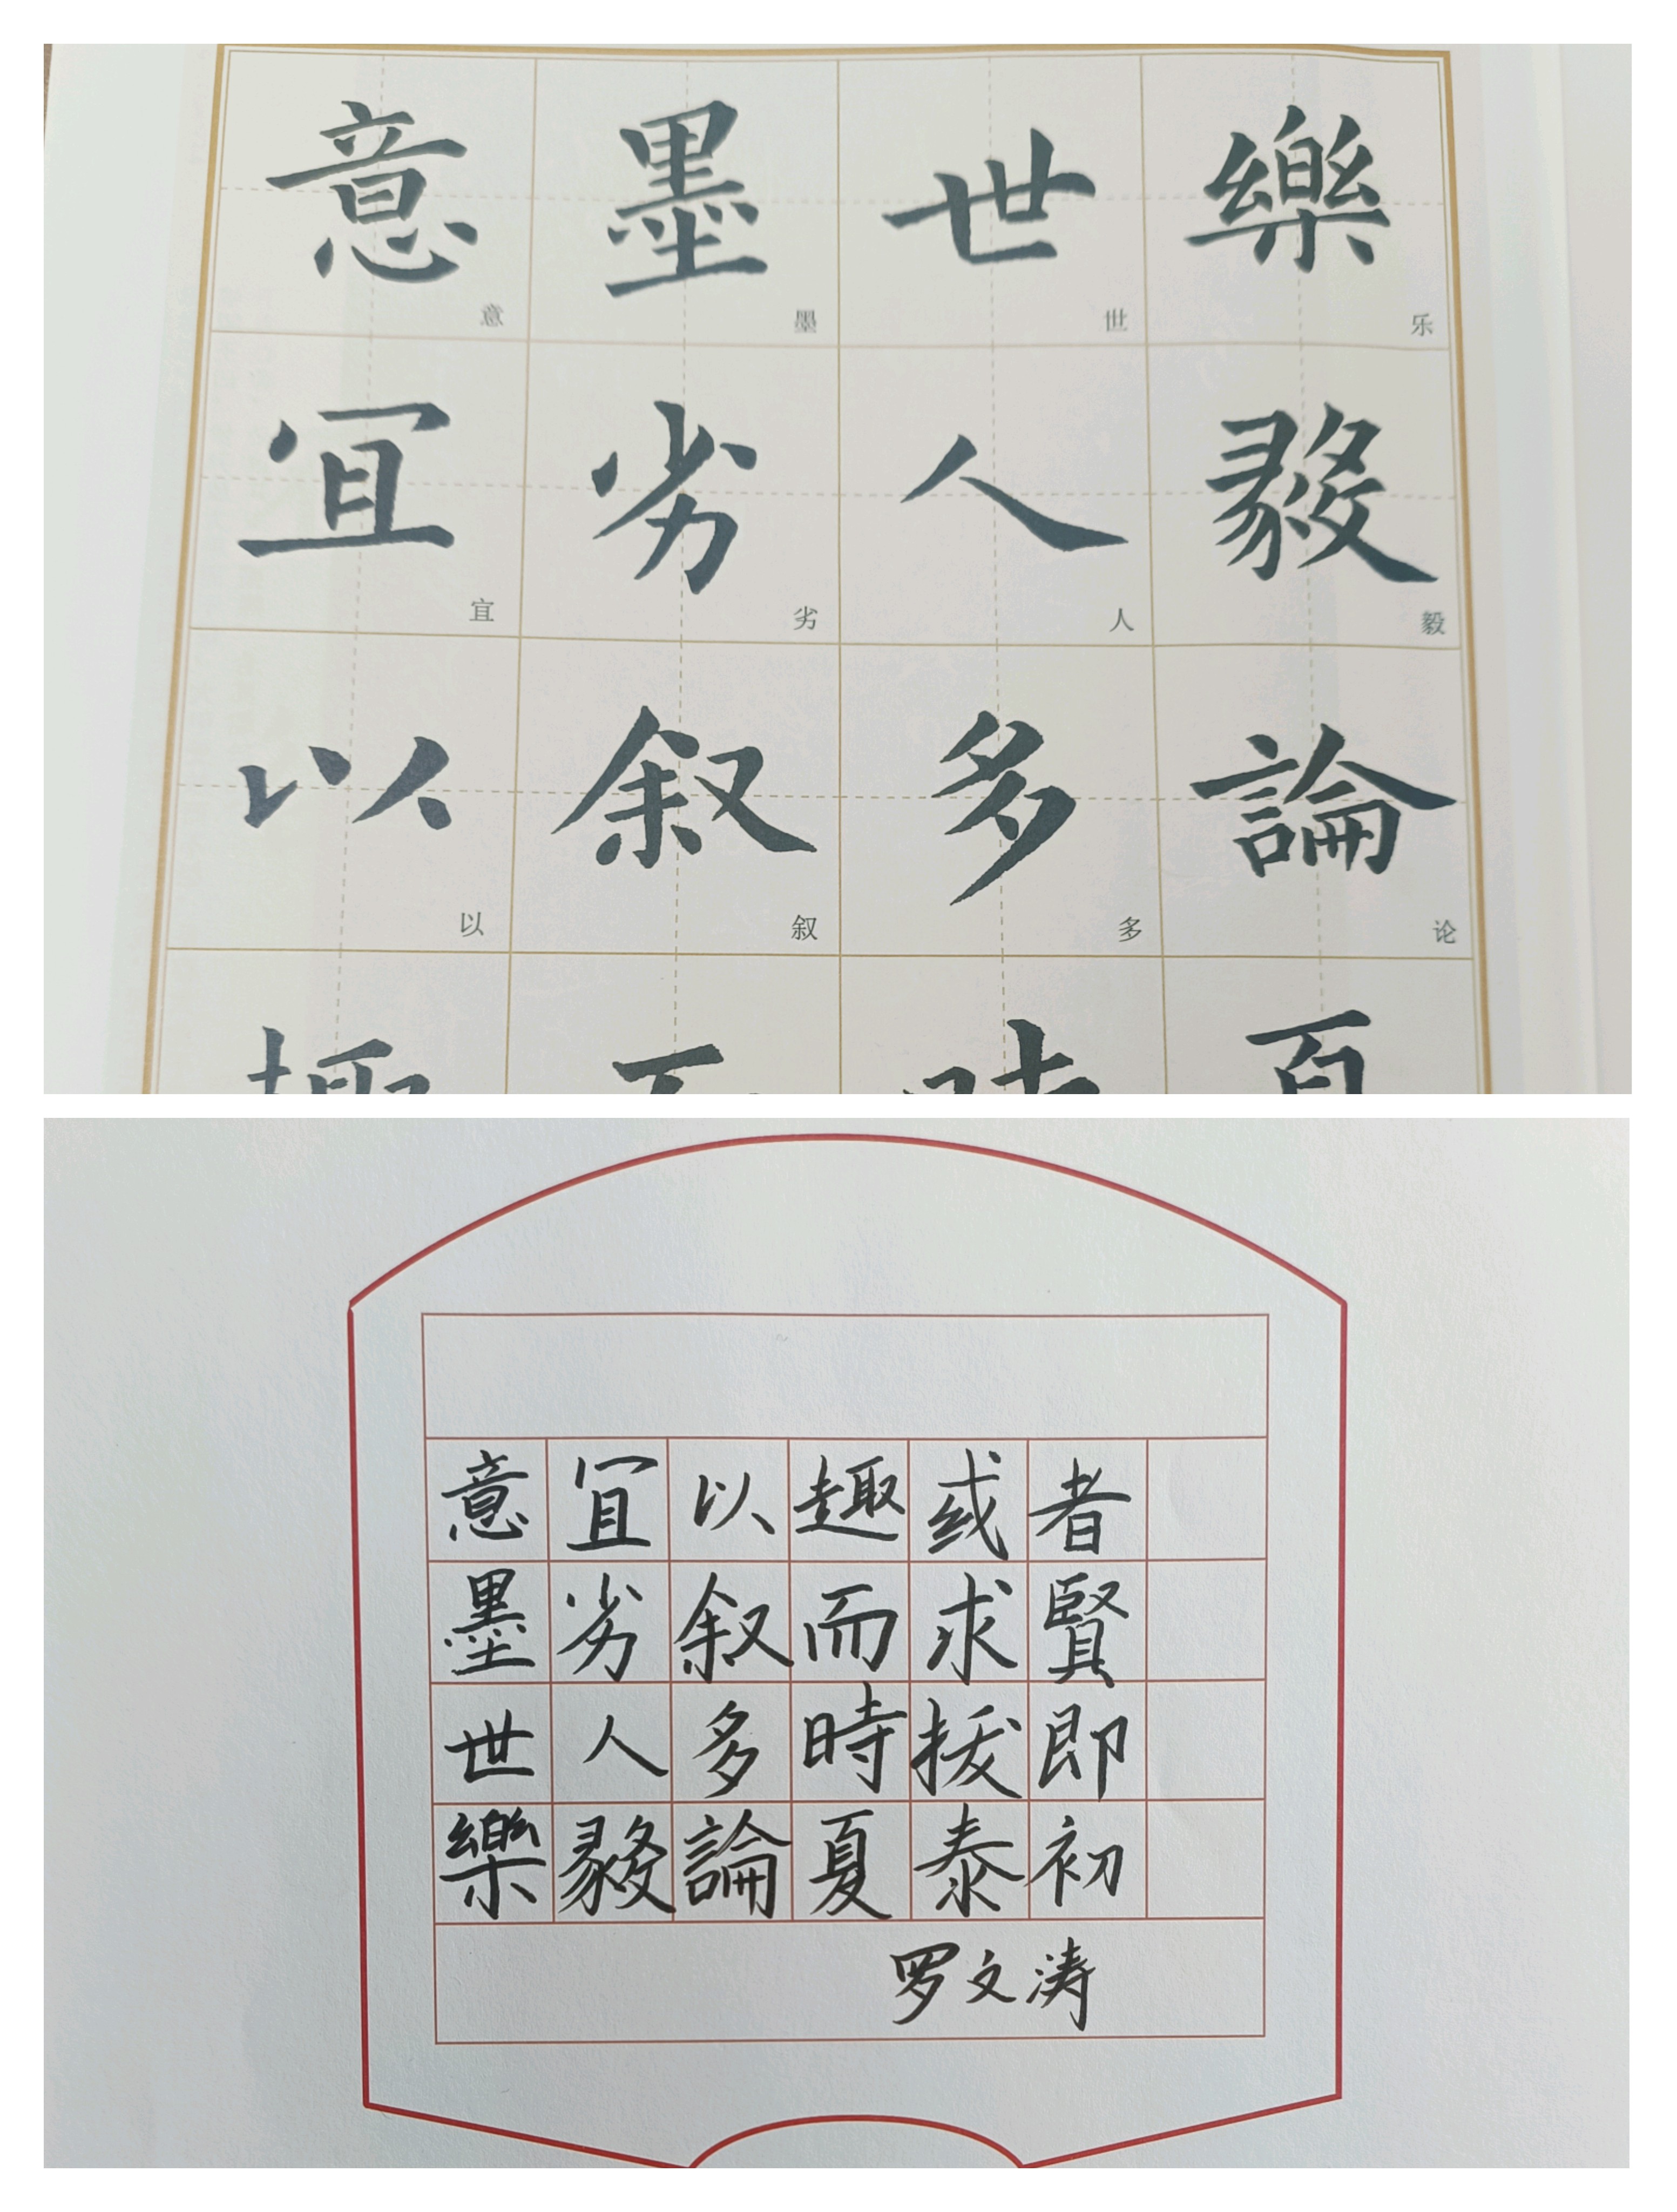 樂毅論
乐毅论
世人多
世人多
墨劣叙
墨劣叙
意宜以
意宜以
意宜以趣或者
墨劣叙而求賢
世人多時拔即
樂毅論夏泰初
罗文涛